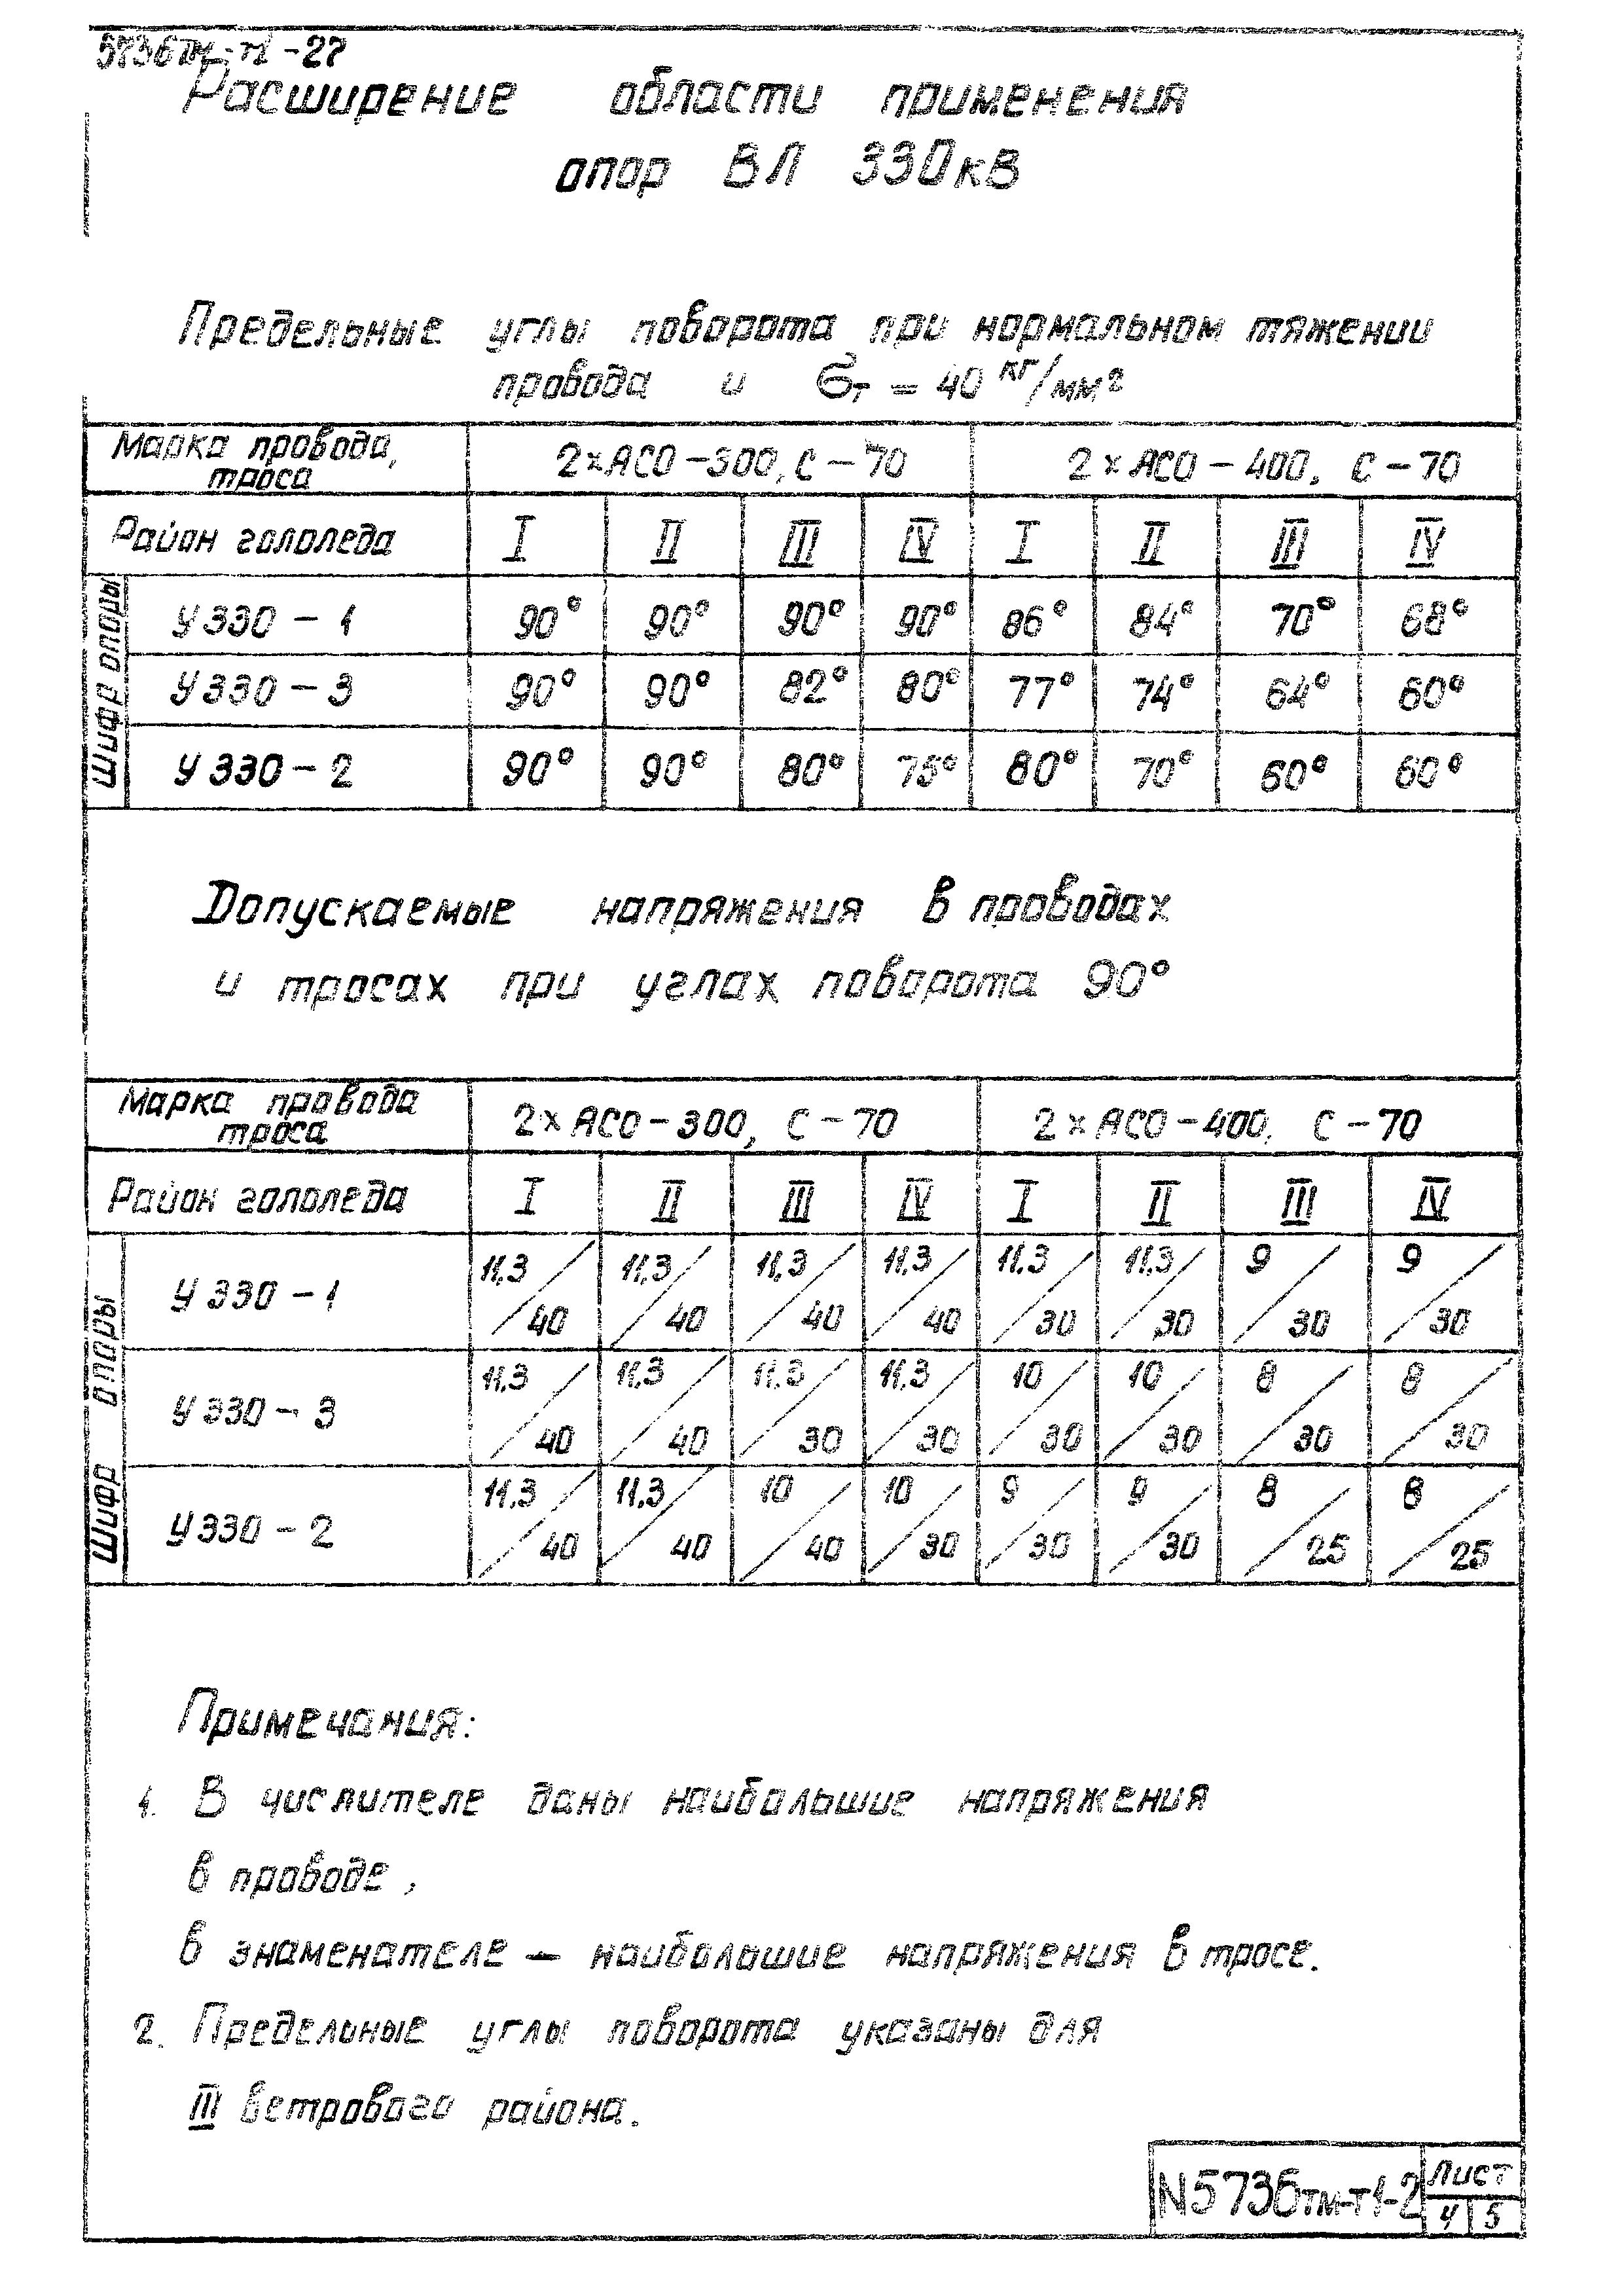 5736тм-т1-27
Расширение области применения
опор ВЛ 330кВ
Предельные углы поворота при нормальном тяжении
провода и бт = 40 кг/мм²
Марка провода, троса 2×АСО-300, С-70 2×АСО-400, С-70
Район гололеда I II III IV I II III IV
Шифр опоры
У330-1 90° 90° 90° 90° 86° 84° 70° 68°
У330-3 90° 90° 82° 80° 77° 74° 64° 60°
У330-2 90° 90° 80° 75° 80° 70° 60° 60°
Допускаемые напряжения в проводах
и тросах при углах поворота 90°
Марка провода троса 2×АСО-300, С-70 2×АСО-400, С-70
Район гололеда I II III IV I II III IV
Шифр опоры
У330-1 11,3/40 11,3/40 11,3/40 11,3/40 11,3/30 11,3/30 9/30 9/30
У330-3 11,3/40 11,3/40 11,3/30 11,3/30 10/30 10/30 8/30 8/30
У330-2 11,3/40 11,3/40 10/40 10/30 9/30 9/30 8/25 8/25
Примечания:
1. В числителе даны наибольшие напряжения
в проводе,
в знаменателе — наибольшие напряжения в тросе.
2. Предельные углы поворота указаны для
III ветрового района.
N5736тм-т1-2
Лист
4 5